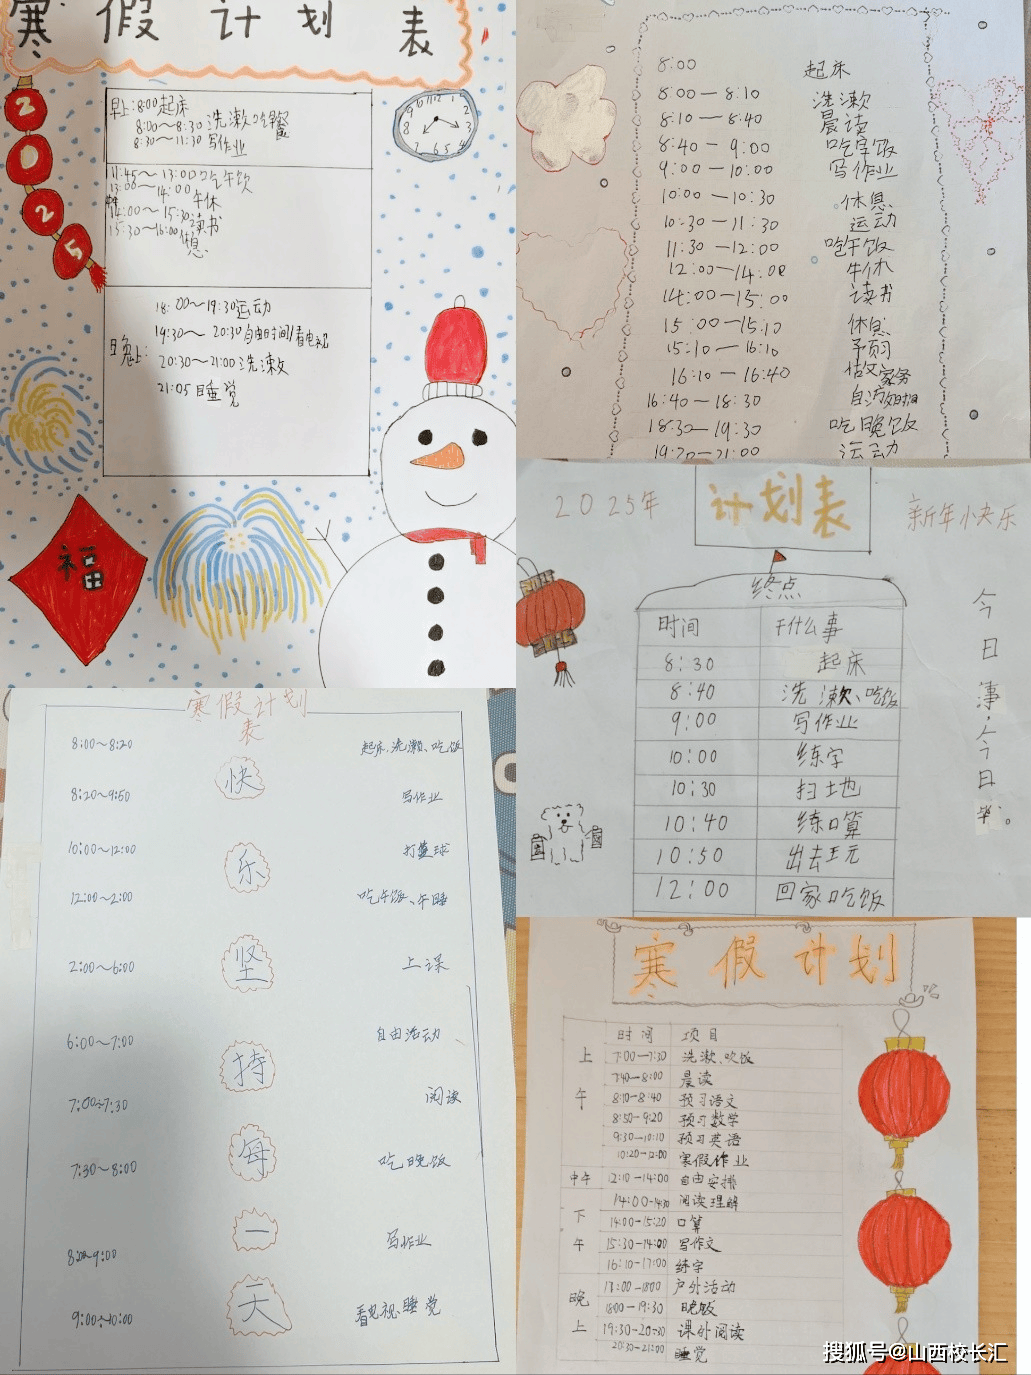 寒假计划表
2025
早上:8:00起床
8:00~8:30 洗漱吃早餐
8:30~11:30 写作业
11:45~13:00吃午饮
13:00~14:00 午休
14:00~15:30读书
15:30~16:00休息
18:00~19:30运动
19:30~20:30自由时间/看电视
晚上:
20:30~21:00洗漱
21:05睡觉
福
8:00 起床
8:00—8:10 洗漱
8:10—8:40 晨读
8:40—9:00 吃早饭
9:00—10:00 写作业
10:00—10:30 休息
10:30—11:30 运动
11:30—12:00 吃午饭
12:00—14:00 午休
14:00—15:00 读书
15:00—15:10 休息
15:10—16:10 预习
16:10—16:40 做家务
16:40—18:30
18:30—19:30 吃晚饭
19:30—21:00 运动
2025年
计划表
新年快乐
终点
时间 干什么事
8:30 起床
8:40 洗漱、吃饭
9:00 写作业
10:00 练字
10:30 扫地
10:40 练口算
10:50 出去玩
12:00 回家吃饭
今日事,今日毕。
寒假计划表
8:00~8:20 起床,洗漱、吃饭
8:20~9:50 写作业
10:00~12:00 打篮球
12:00~2:00 吃午饭、午睡
2:00~6:00 上课
6:00~7:00 自由活动
7:00~7:30 阅读
7:30~8:00 吃晚饭
写作业
9:00~10:00 看电视、睡觉
快乐坚持每一天
寒假计划
时间 项目
上午
7:00—7:30 洗漱、吃饭
7:40—8:00 晨读
8:10—8:40 预习语文
8:50—9:20 预习数学
9:30—10:10 预习英语
10:20—12:00 寒假作业
中午 12:10—14:00 自由安排
下午
14:00—14:30 阅读理解
14:00—15:20 口算
15:30—14:00 写作文
16:10—17:00 练字
晚上
17:00—18:00 户外活动
18:00—19:30 晚饭
19:30—20:30 课外阅读
20:30—21:00 睡觉
搜狐号@山西校长汇